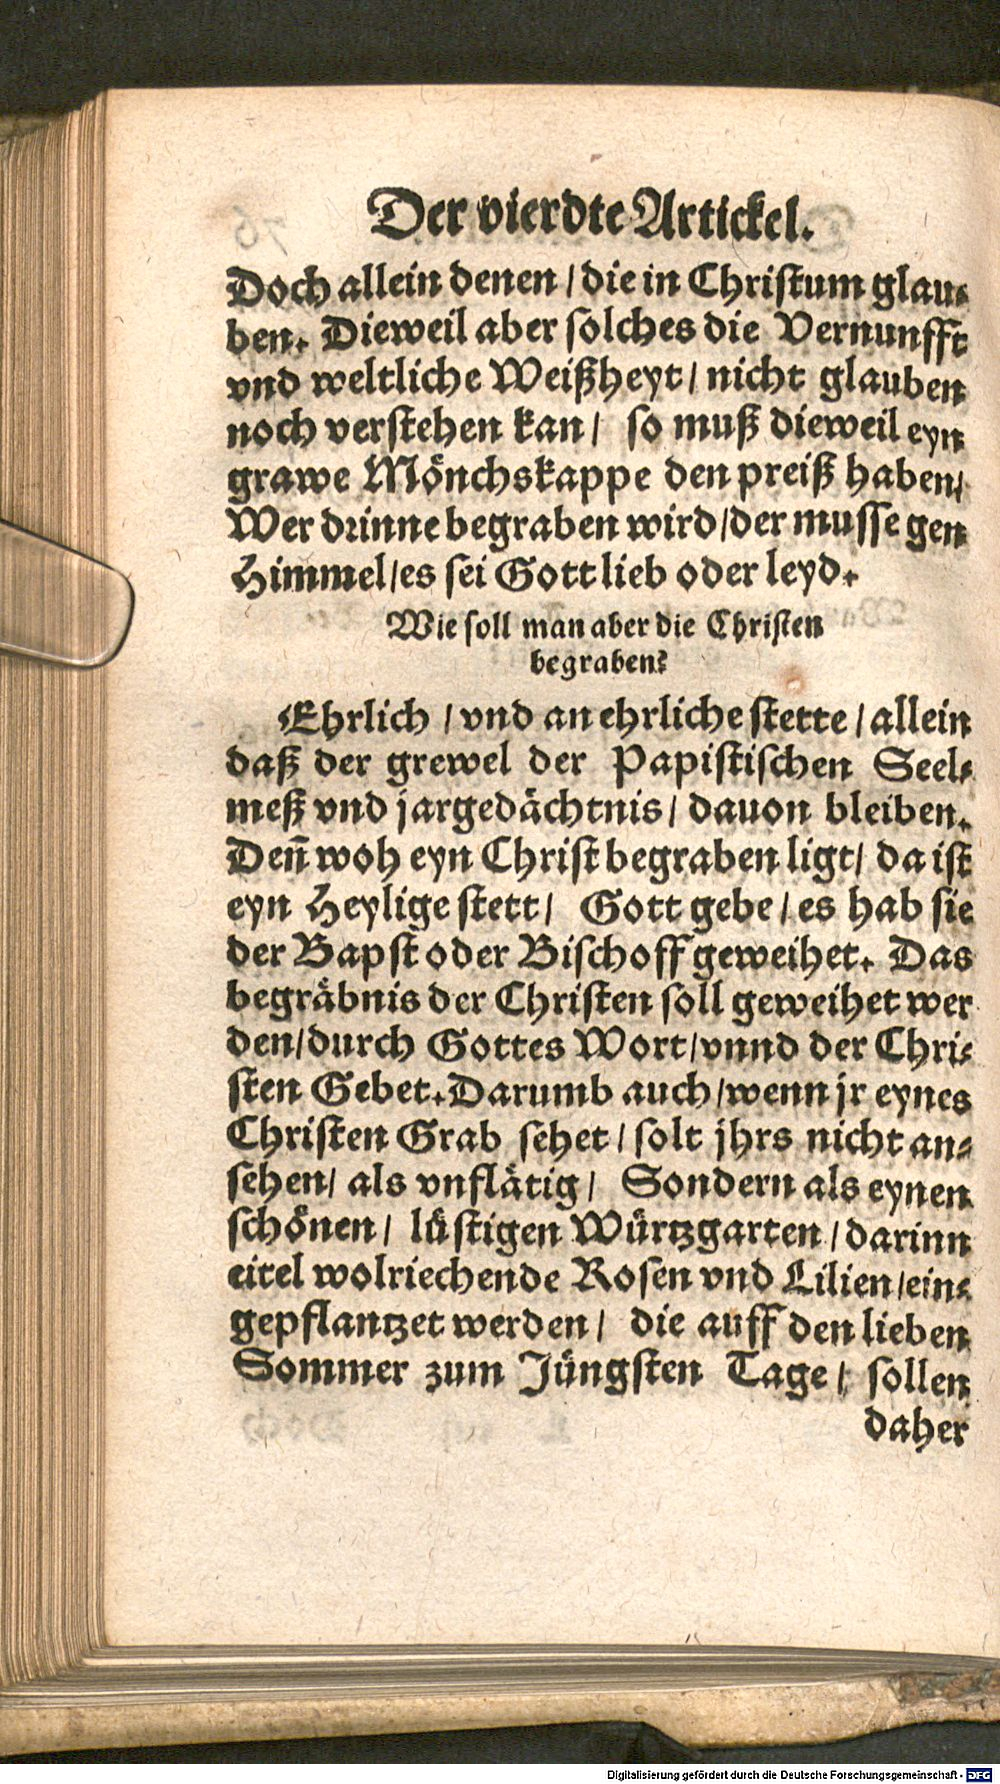 Der vierdte Artickel.
Doch allein denen / die in Christum glau⸗
ben. Dieweil aber solches die Vernunfft
vnd weltliche Weißheyt / nicht glauben
noch verstehen kan / so muß dieweil eyn
grawe Mönchskappe den preiß haben /
Wer drinne begraben wird / der musse gen
Himmel / es sei Gott lieb oder leyd.
Wie soll man aber die Christen
begraben?
Ehrlich / vnd an ehrliche stette / allein
daß der grewel der Papistischen Seel⸗
meß vnd jargedächtnis / dauon bleiben.
Deñ woh eyn Christ begraben ligt / da ist
eyn Heylige stett / Gott gebe / es hab sie
der Bapst oder Bischoff geweihet. Das
begräbnis der Christen soll geweihet wer
den / durch Gottes Wort / vnnd der Chri⸗
sten Gebet. Darumb auch / wenn jr eynes
Christen Grab sehet / solt jhrs nicht an⸗
sehen / als vnflätig / Sondern als eynen
schönen / lüstigen Würtzgarten / darinn
eitel wolriechende Rosen vnd Lilien / ein⸗
gepflantzet werden / die auff den lieben
Sommer zum Jüngsten Tage / sollen
daher
Digitalisierung gefördert durch die Deutsche Forschungsgemeinschaft - DFG